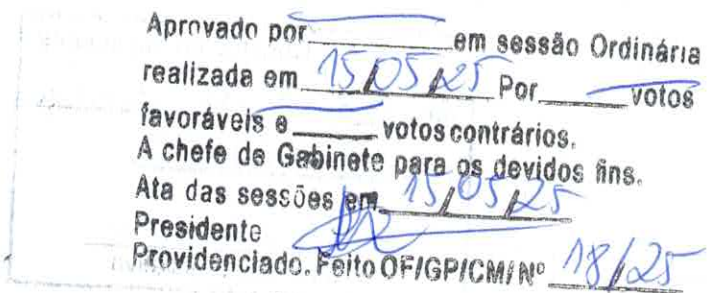 Aprovado por__________em sessão Ordinária
realizada em 15/05/25 Por______votos
favoráveis e______votos contrários.
A chefe de Gabinete para os devidos fins.
Ata das sessões em 15/05/25
Presidente
Providenciado. Feito OF/GP/CM/Nº 18/25